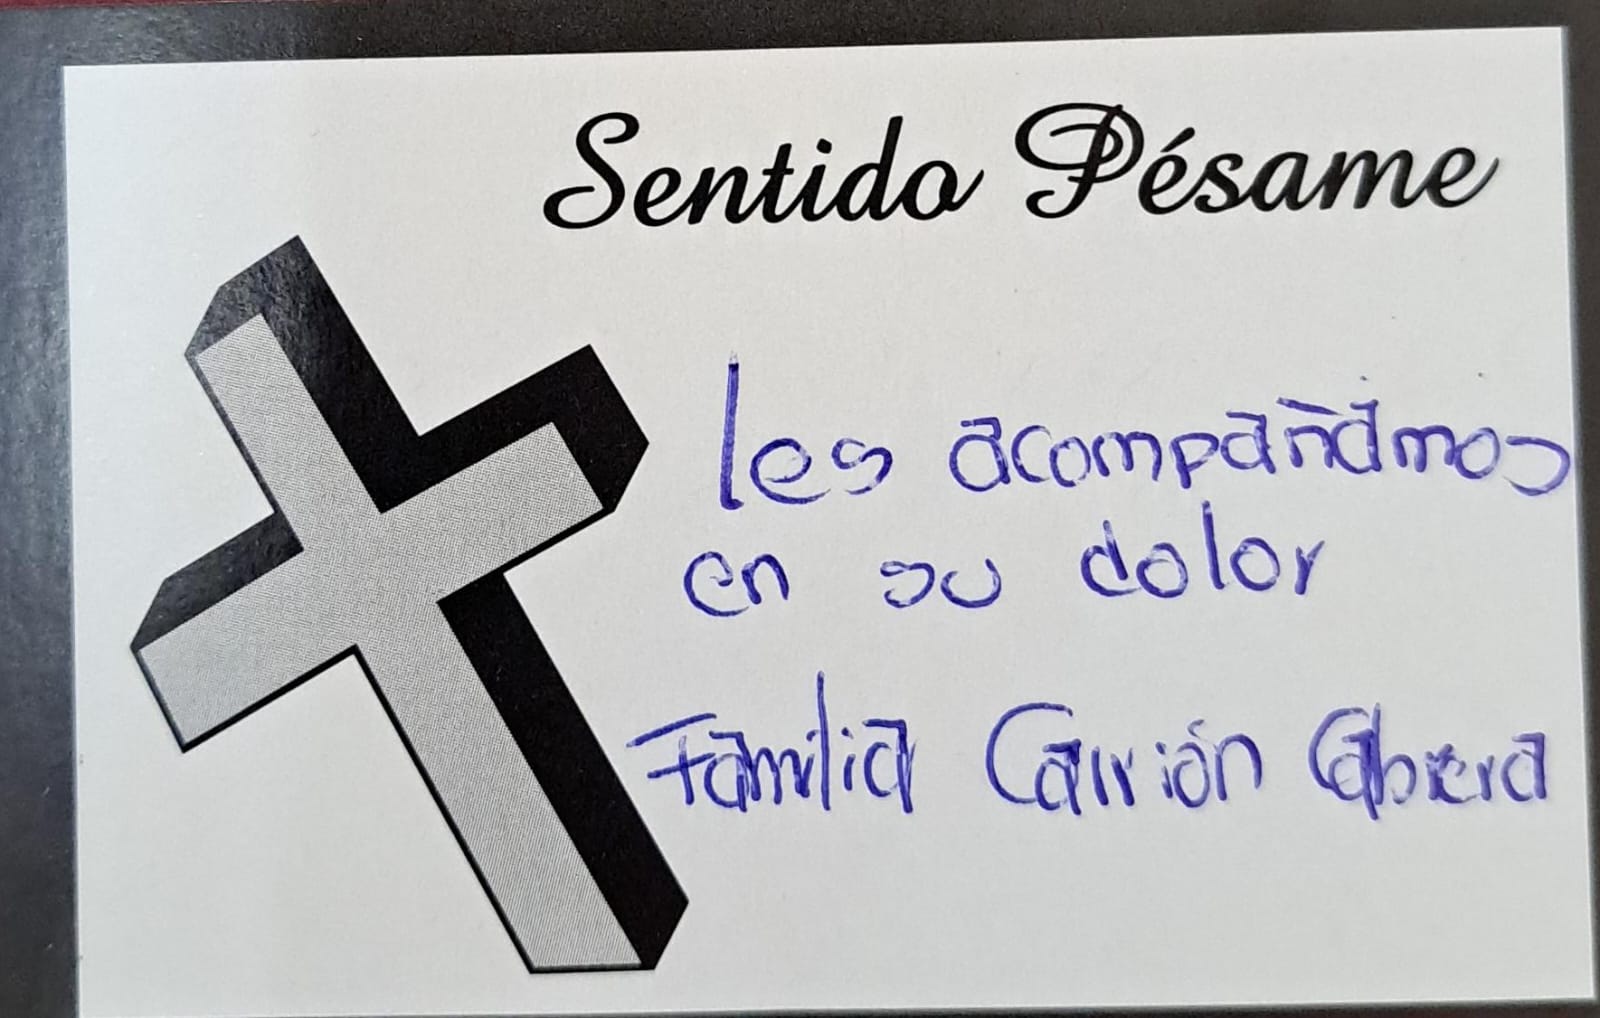 Sentido Pésame
les acompañamos
en su dolor
Familia Carrión Cabrera